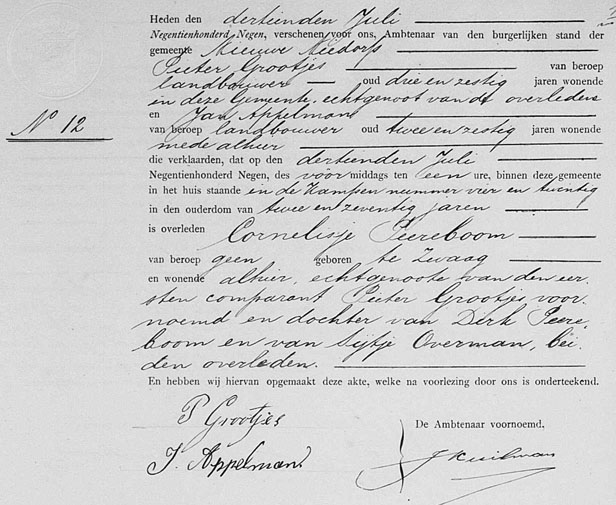 Heden den dertienden Juli
Negentienhonderd Negen, verschenen voor ons, Ambtenaar van den burgerlijken stand der
gemeente Nieuwe Niedorp
Pieter Grootjes van beroep
landbouwer oud drie en zestig jaren wonende
in deze Gemeente, echtgenoot van de overledene
en Jan Appelman
van beroep landbouwer oud twee en zestig jaren wonende
mede alhier
N° 12
die verklaarden, dat op den dertienden Juli
Negentienhonderd Negen, des vóór middags ten een ure, binnen deze gemeente
in het huis staande in de Kampen nummer vier en twintig
in den ouderdom van twee en zeventig jaren
is overleden Cornelisje Peereboom
van beroep geen geboren te Zwaag
en wonende alhier, echtgenoote van den eer-
sten comparant Pieter Grootjes voor-
noemd en dochter van Dirk Peere-
boom en van Sijtje Overman, bei-
den overleden.
En hebben wij hiervan opgemaakt deze akte, welke na voorlezing door ons is onderteekend.
P Grootjes
De Ambtenaar voornoemd,
J. Appelman
J Kuilman